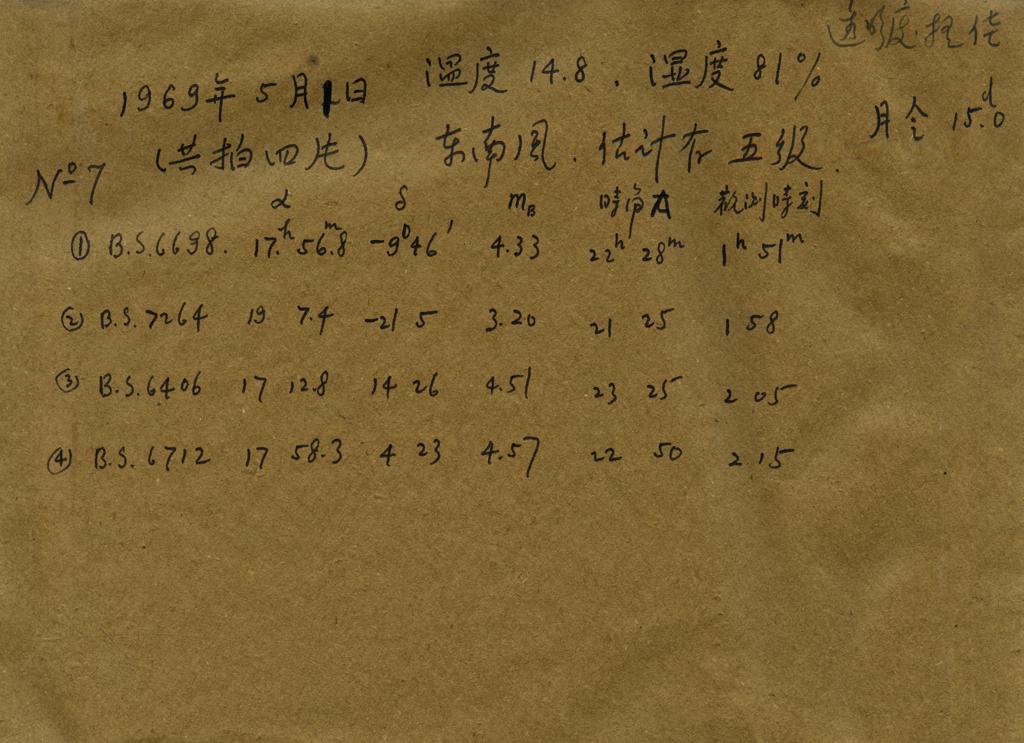 透明度极佳
1969年5月1日 温度14.8、湿度81%
月令 15.0d
No7 (共拍四片) 东南风、估计在五级.
α δ mB 時角 観測時刻
① B.S.6698. 17.h56.m8 -9°46′ 4.33 22h 28m 1h 51m
② B.S.7264 19 7.4 -21 5 3.20 21 25 1 58
③ B.S.6406 17 12.8 14 26 4.51 23 25 2 05
④ B.S.6712 17 58.3 4 23 4.57 22 50 2 15